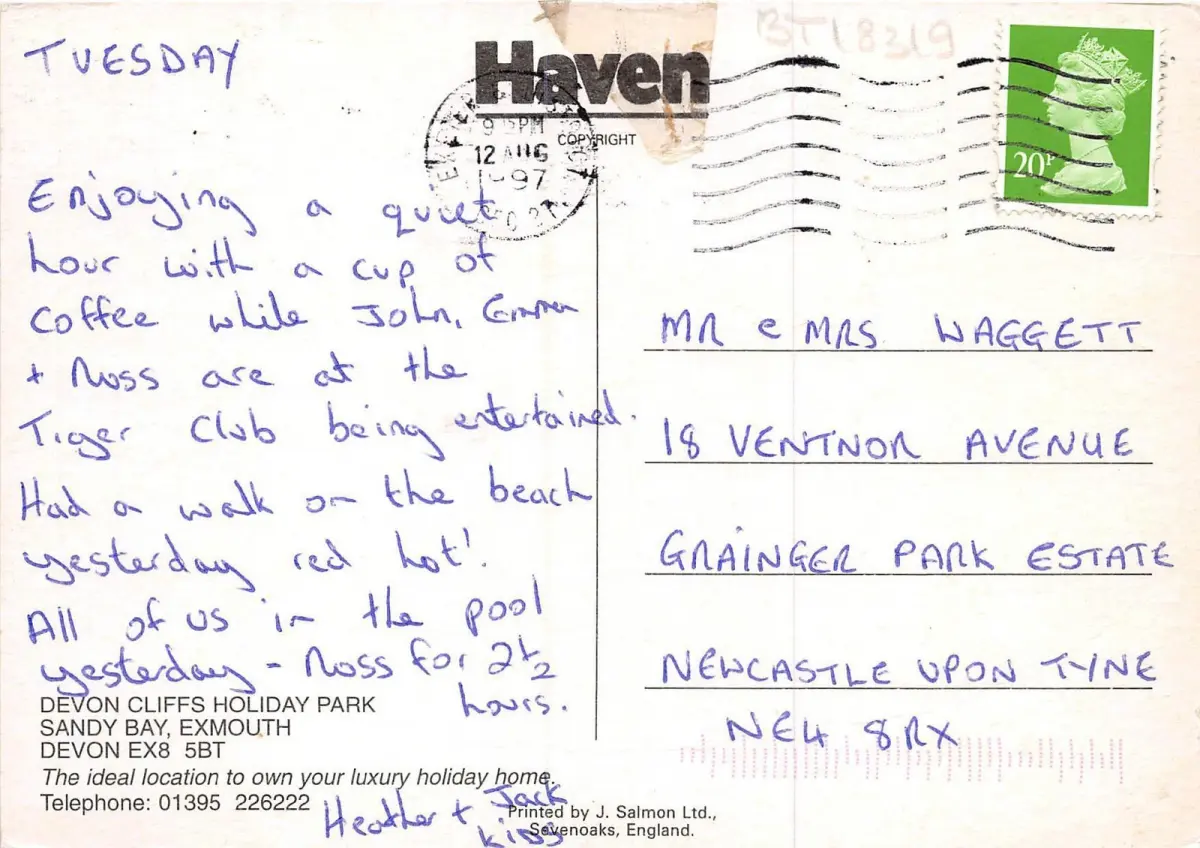 BT18319
TUESDAY
Haven
COPYRIGHT
12 AUG
97
20P
Enjoying a quiet
hour with a cup of
coffee while John, Emma
+ Ross are at the
Tiger Club being entertained.
Had a walk on the beach
yesterday red hot!
All of us in the pool
yesterday - Ross for 2½
hours.
DEVON CLIFFS HOLIDAY PARK
SANDY BAY, EXMOUTH
DEVON EX8 5BT
The ideal location to own your luxury holiday home.
Telephone: 01395 226222
Heather + Jack
King
Printed by J. Salmon Ltd.,
Sevenoaks, England.
MR & MRS WAGGETT
18 VENTNOR AVENUE
GRAINGER PARK ESTATE
NEWCASTLE UPON TYNE
NE4 8RX